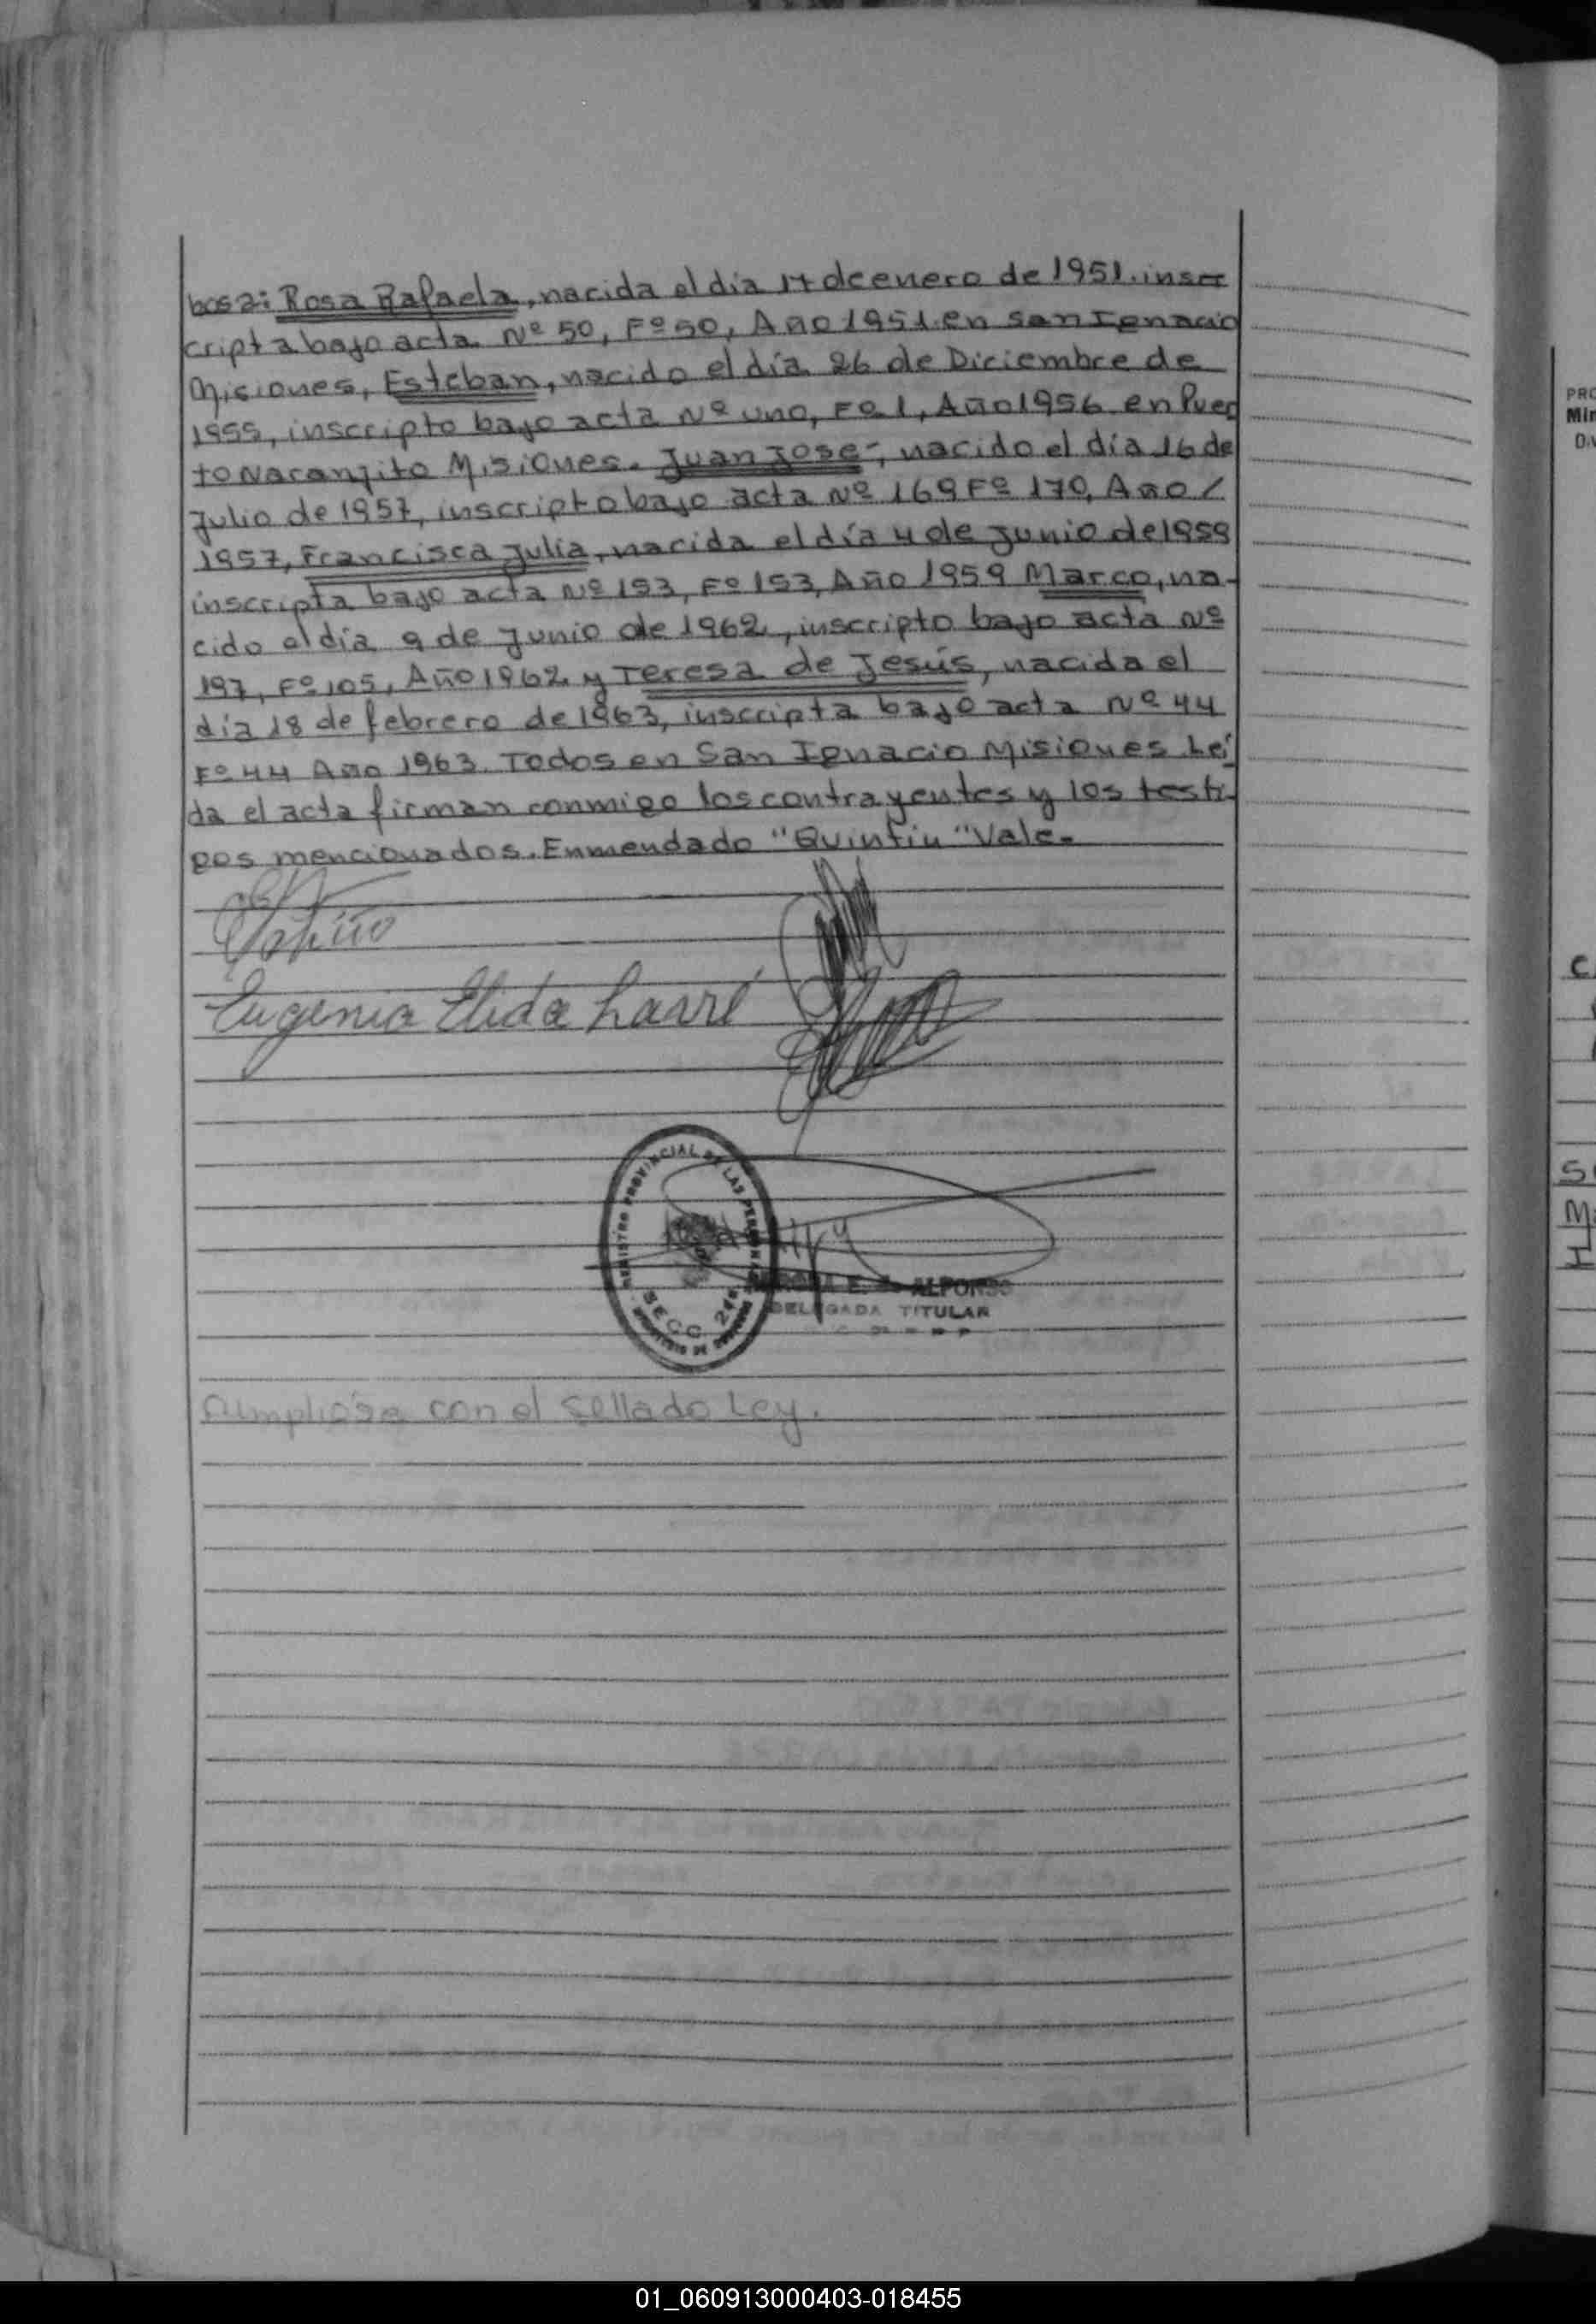 bos a: Rosa Rafaela, nacida el día 17 de enero de 1951. inscr
cripta bajo acta Nº 50, Fº 50, Año 1951. en San Ignacio
Misiones, Esteban, nacido el día 26 de Diciembre de
1955, inscripto bajo acta Nº uno, Fº 1, Año 1956 en Puer
to Naranjito Misiones. Juan Jose-, nacido el día 16 de
Julio de 1957, inscripto bajo acta Nº 169 Fº 170, Año /
1957, Francisca Julia, nacida el día 4 de Junio de 1959
inscripta bajo acta Nº 153, Fº 153, Año 1959 Marco, na-
cido el día 9 de Junio de 1962, inscripto bajo acta Nº
197, Fº 105, Año 1962 y Teresa de Jesús, nacida el
día 18 de febrero de 1963, inscripta bajo acta Nº 44
Fº 44 Año 1963. Todos en San Ignacio Misiones Leí
da el acta firman conmigo los contrayentes y los testi-
gos mencionados. Enmendado "Quintin" Vale-
Eugenia Elida Larré
REGISTRO PROVINCIAL DE LAS PERSONAS
SECC.
E. ALFONSO
DELEGADA TITULAR
Amplióse con el Sellado Ley.
PRO
Min
01_060913000403-018455